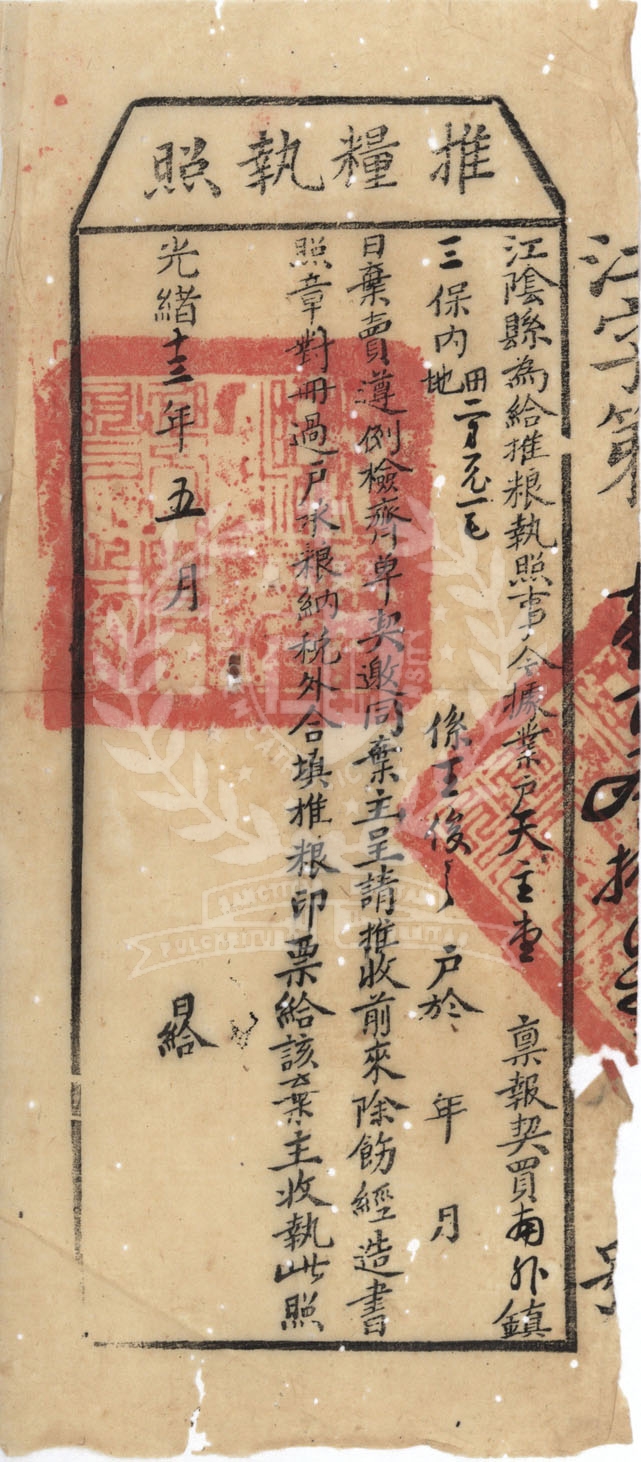 推糧執照
江陰縣為給推粮執照事今據業户天主堂 禀報契買南外鎮
三保内田地 係王俊 户於 年 月
日棄賣遵例檢齊单契邀同棄主呈請推收前來除飭經造書
照章對冊過户承粮納税外合填推粮印票給該棄主收執此照
光緒十三年五月 日給
江字第 號